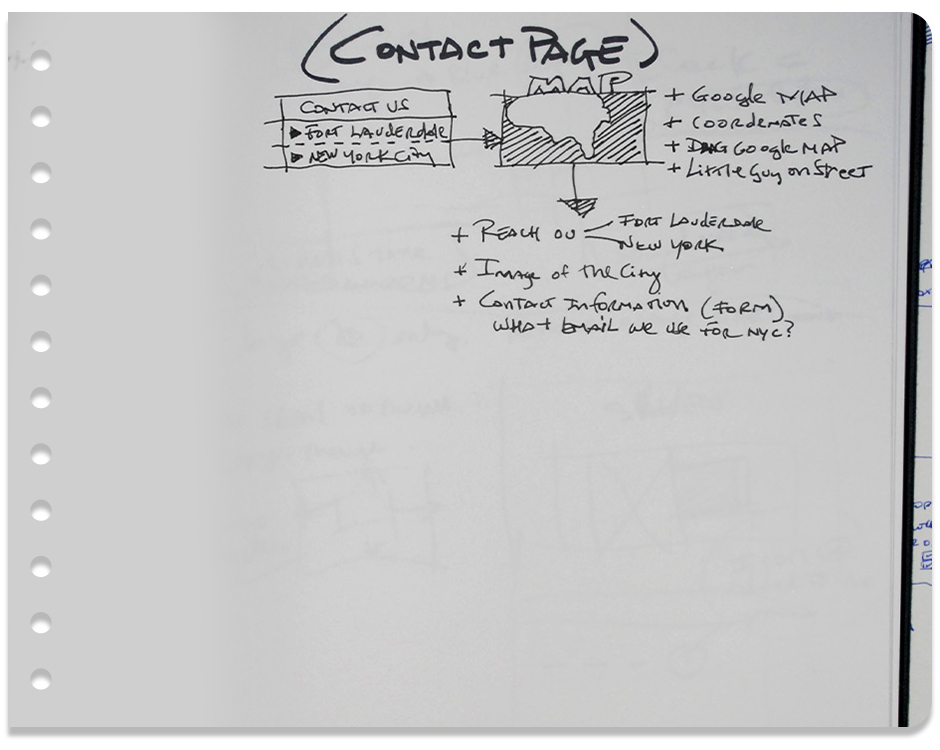 (CONTACT PAGE)
MAP
CONTACT US
FORT LAUDERDALE
NEW YORK CITY
+ GOOGLE MAP
+ COORDENATES
+ GOOGLE MAP
+ LITTLE GUY ON STREET
+ REACH OU
FORT LAUDERDALE
NEW YORK
+ IMAGE OF THE CITY
+ CONTACT INFORMATION (FORM)
WHAT EMAIL WE USE FOR NYC?